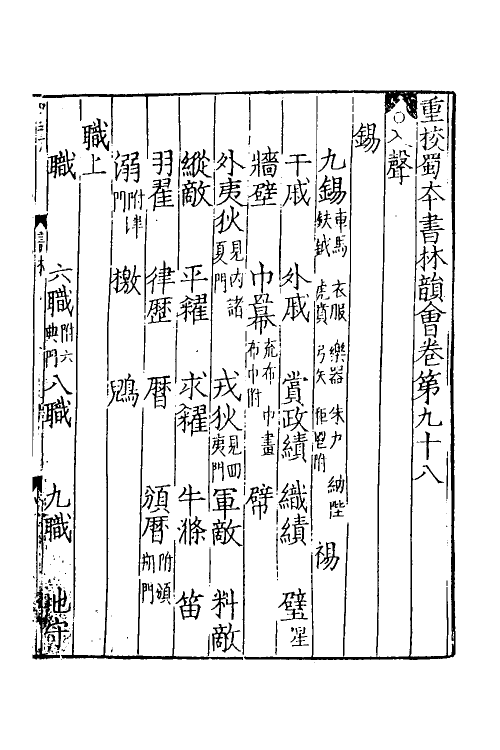 重校蜀本書林韻會卷第九十八
○入聲
錫
九錫車馬 衣服 樂器 朱户 納陛 鈇鉞 虎賁 弓矢 秬鬯附 裼
干戚 外戚 賞政績 織績 璧星
牆壁 巾冪疏布 巾畫 布巾附 帟
外夷狄見内諸夏門 戎狄見四夷門 軍敵 料敵
縱敵 平糴 求糴 牛滌 笛
羽翟 律歷 暦 頒暦附頒朔門
溺附津門 檄 鷁
職上
職 六職附六典門 八職 九職 地守